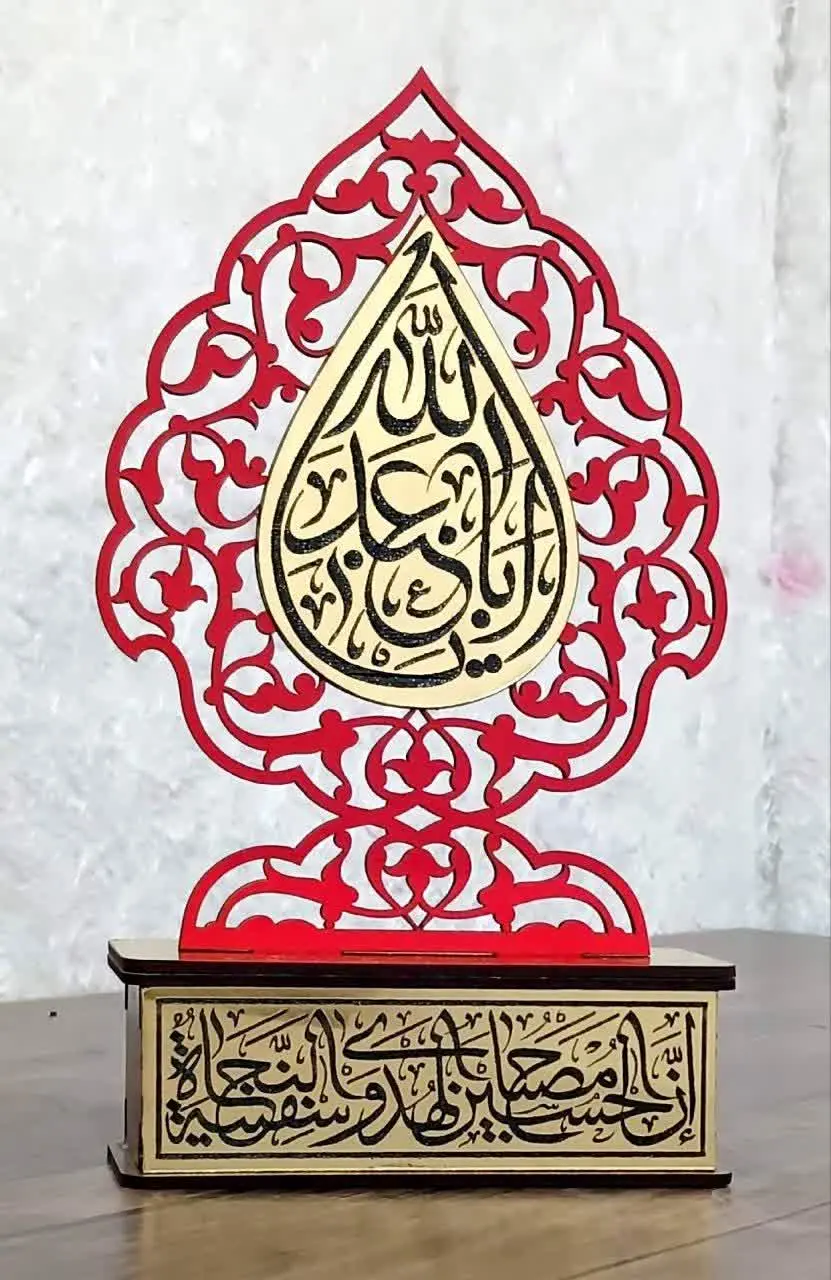 یا اباعبدالله
إن الحسین مصباح الهدی و سفینة النجاة